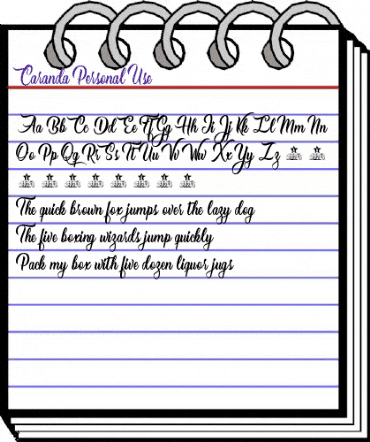 Caranda Personal Use
Aa Bb Cc Dd Ee Ff Gg Hh Ii Jj Kk Ll Mm Nn
Oo Pp Qq Rr Ss Tt Uu Vv Ww Xx Yy Zz
The quick brown fox jumps over the lazy dog
The five boxing wizards jump quickly
Pack my box with five dozen liquor jugs